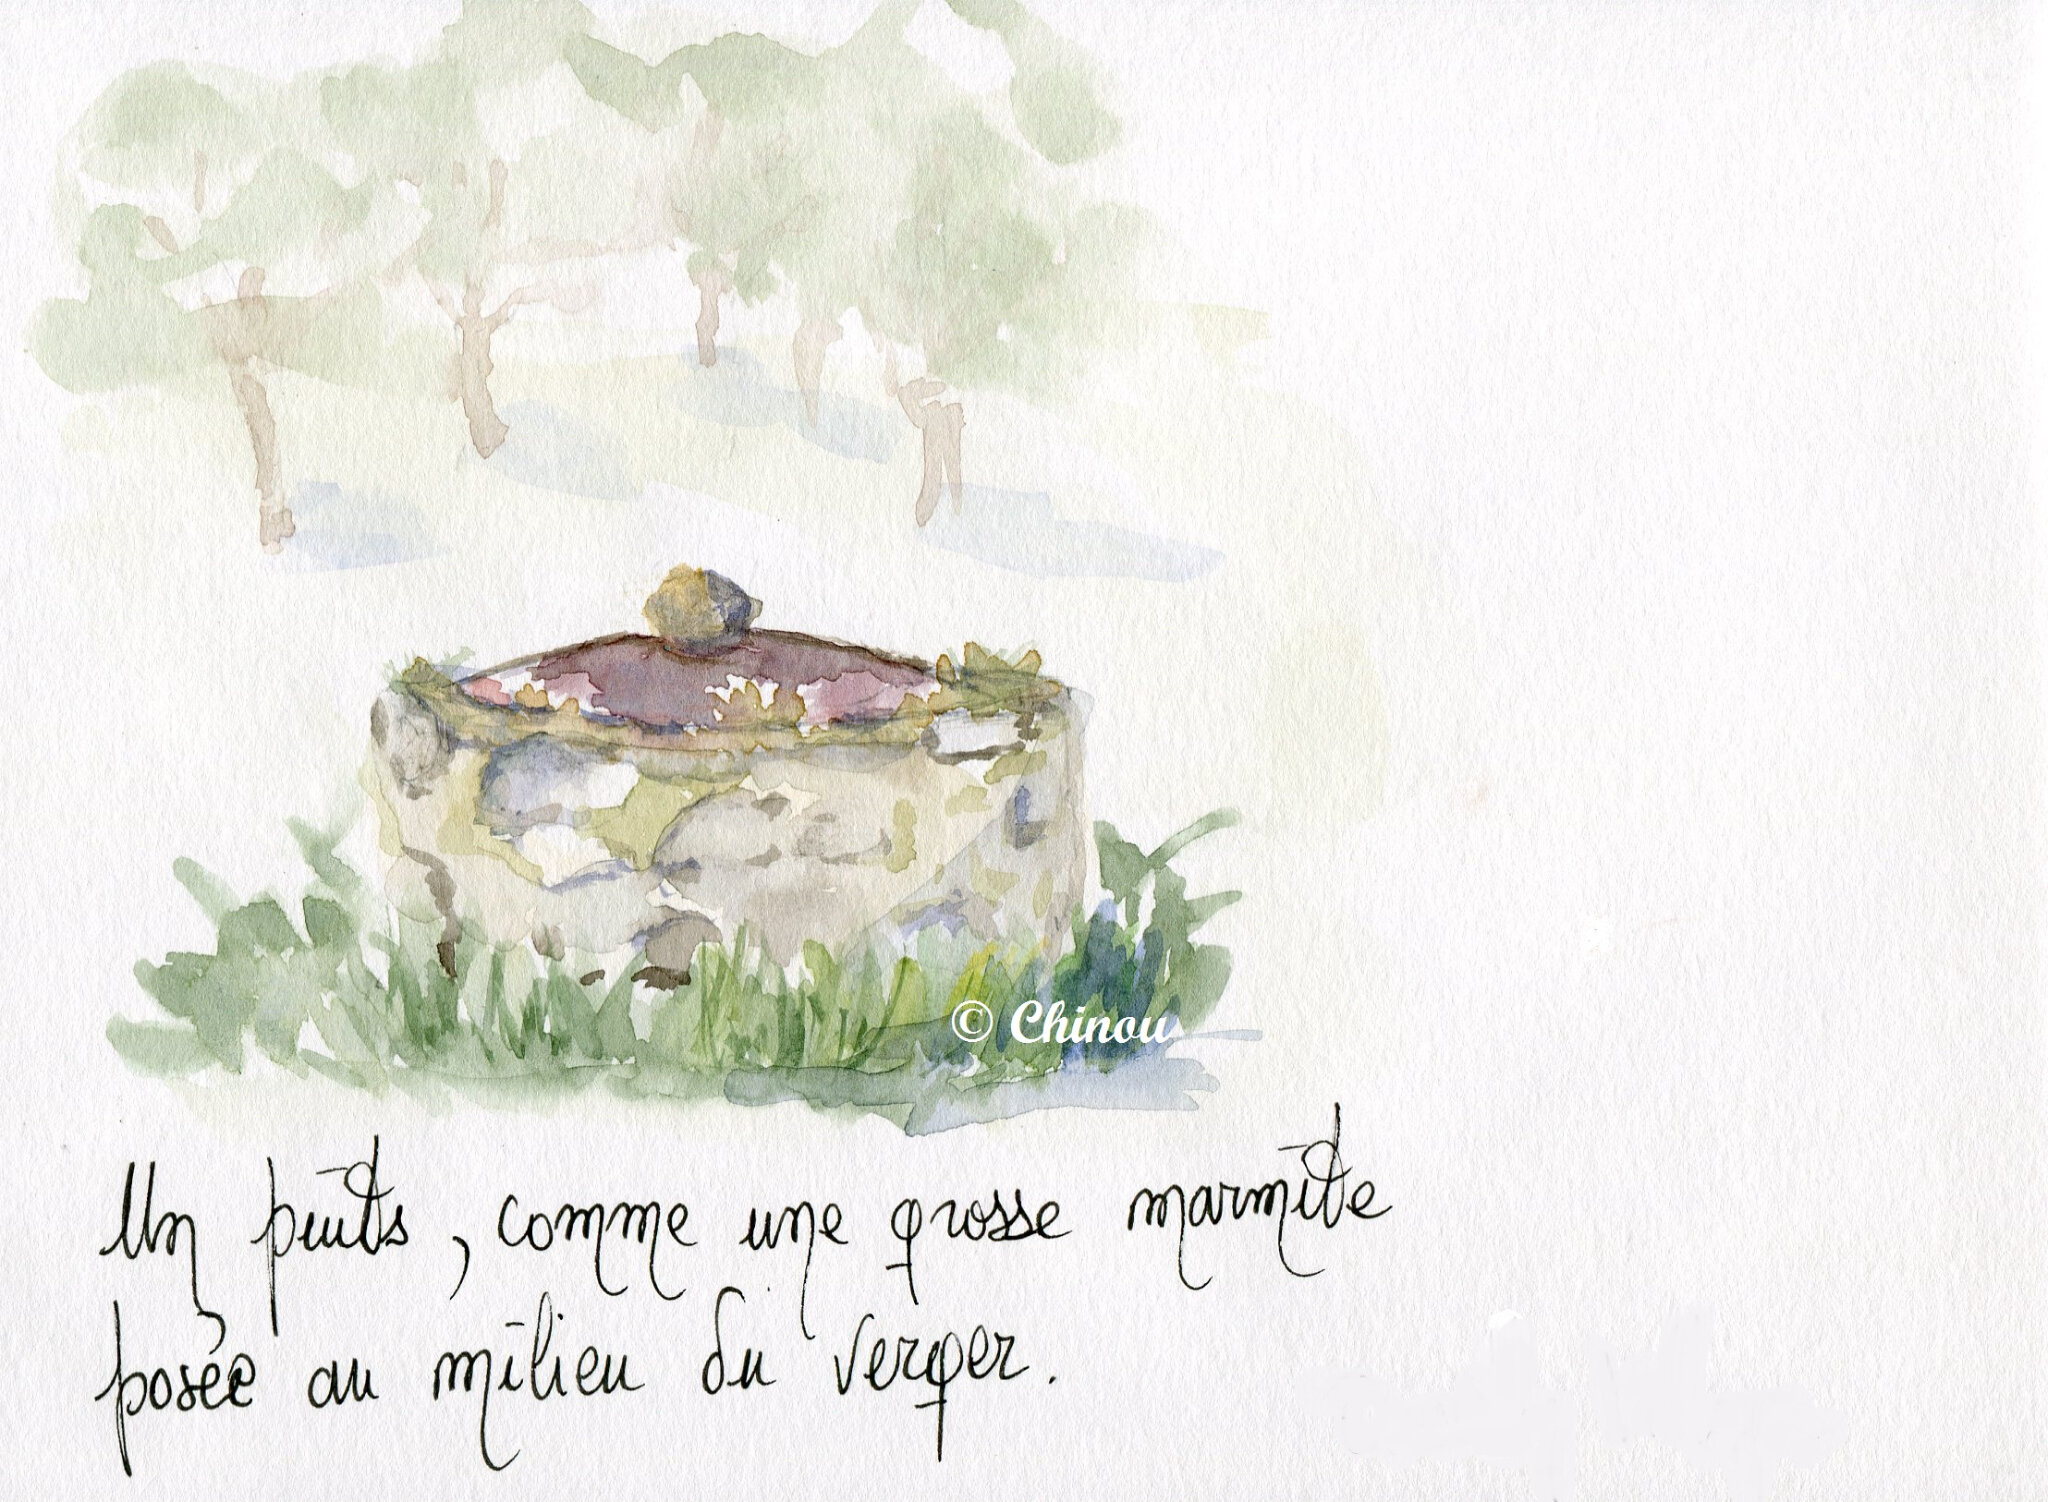 © Chinou
Un puits, comme une grosse marmite
posée au milieu du verger.